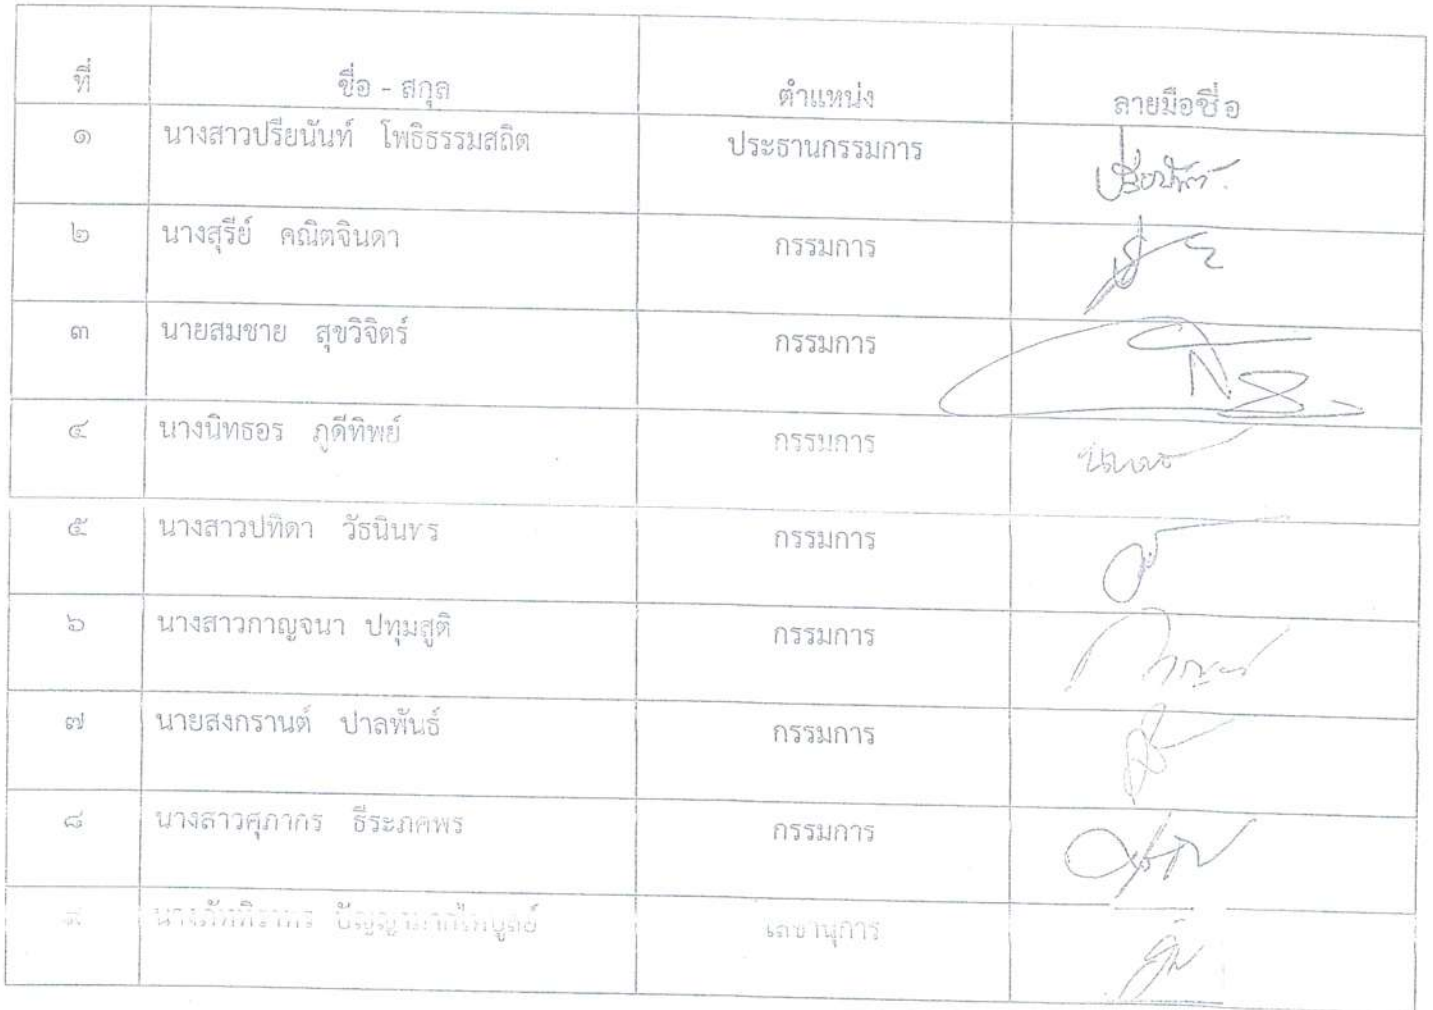 ที่ ชื่อ - สกุล ตำแหน่ง ลายมือชื่อ
๑ นางสาวปรียนันท์ โพธิธรรมสถิต ประธานกรรมการ
๒ นางสุรีย์ คณิตจินดา กรรมการ
๓ นายสมชาย สุขวิจิตร์ กรรมการ
๔ นางนิทธอร ภูดีทิพย์ กรรมการ
๕ นางสาวปทิดา วัธนินทร กรรมการ
๖ นางสาวกาญจนา ปทุมสูติ กรรมการ
๗ นายสงกรานต์ ปาลพันธ์ กรรมการ
๘ นางสาวศุภากร ธีระภคพร กรรมการ
๙ เลขานุการ